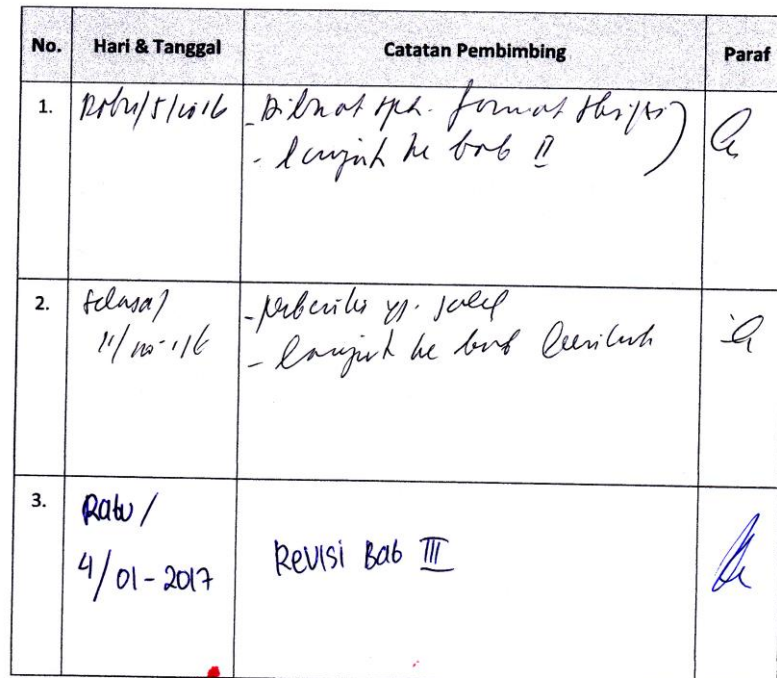 No. Hari & Tanggal Catatan Pembimbing Paraf
1. Rabu/5/10 16 - Dibuat format skripsi
- lanjut ke bab II
2. Selasa/ - perbaiki yg.
11/10-16 - lanjut ke bab berikut
3. Rabu /
4/01-2017 Revisi Bab III